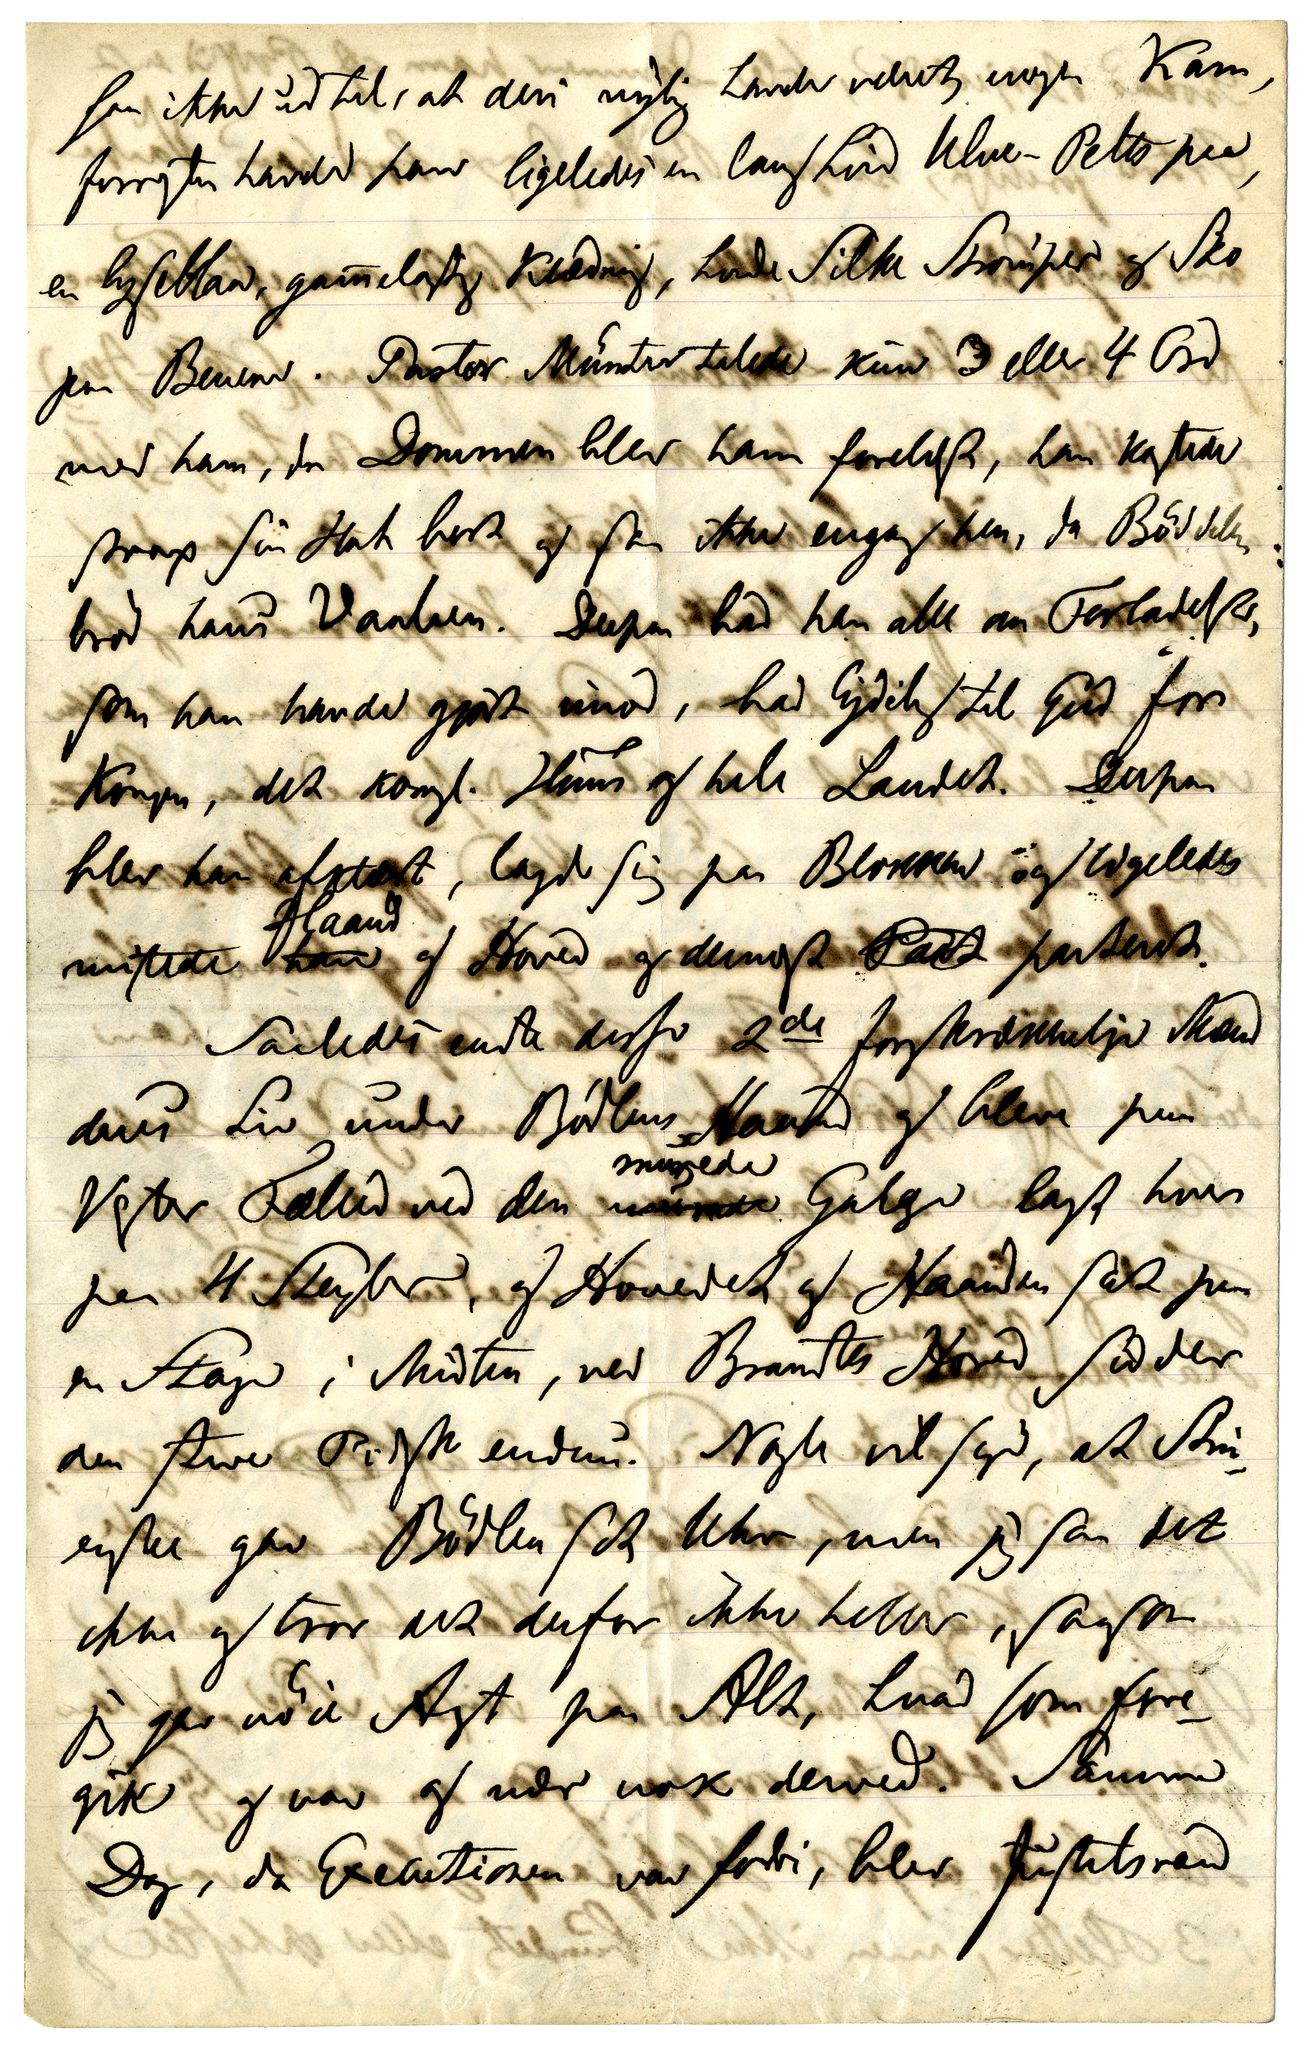 saa ikke ud til, at deri nylig havde været nogen Kam,
forresten havde han ligeledes en lang hvid Ulve-Pelts paa,
en lyseblaa, gam̅elagtig Klædning, hvide Silke Strömper og Sko
paa Benene. Pastor Münter talede kun 3 eller 4 Ord
med ham, da Dommen blev ham forelæst, han kastede
strax sin Hat bort og saa ikke engang hen, da Bödelen
bröd hans Vaaben. Derpaa bad han alle om Forladelse,
som han havde gjort imod, bad lydelig til Gud for
Kongen, det kongl. Huus og hele Landet. Derpaa
blev han afklædt, lagde sig paa Blokken og ligeledes
mistede Haand og Hoved og dernæst parteret.
Saaledes endte disse 2de forskrækkelige Mænd
deres Liv under Bödlens Haand og bleve paa
Vester Fælled ved den murede Galge lagt hver
paa 4 Steyler, og Hovedet og Haanden sat paa
en Stage i Midten, ved Brandts Hoved sidder
den stive Pidsk endnu. Nogle vil sige, at Stru-
ensee gav Bödlen sit Uhr, men jeg saa det
ikke og troer det derfor ikke heller, saasom
jeg gav nöie Agt paa Alt, hvad som fore-
gik og var og nær nok derved. Samme
Dag, da Executionen var forbi, blev Justitsraad